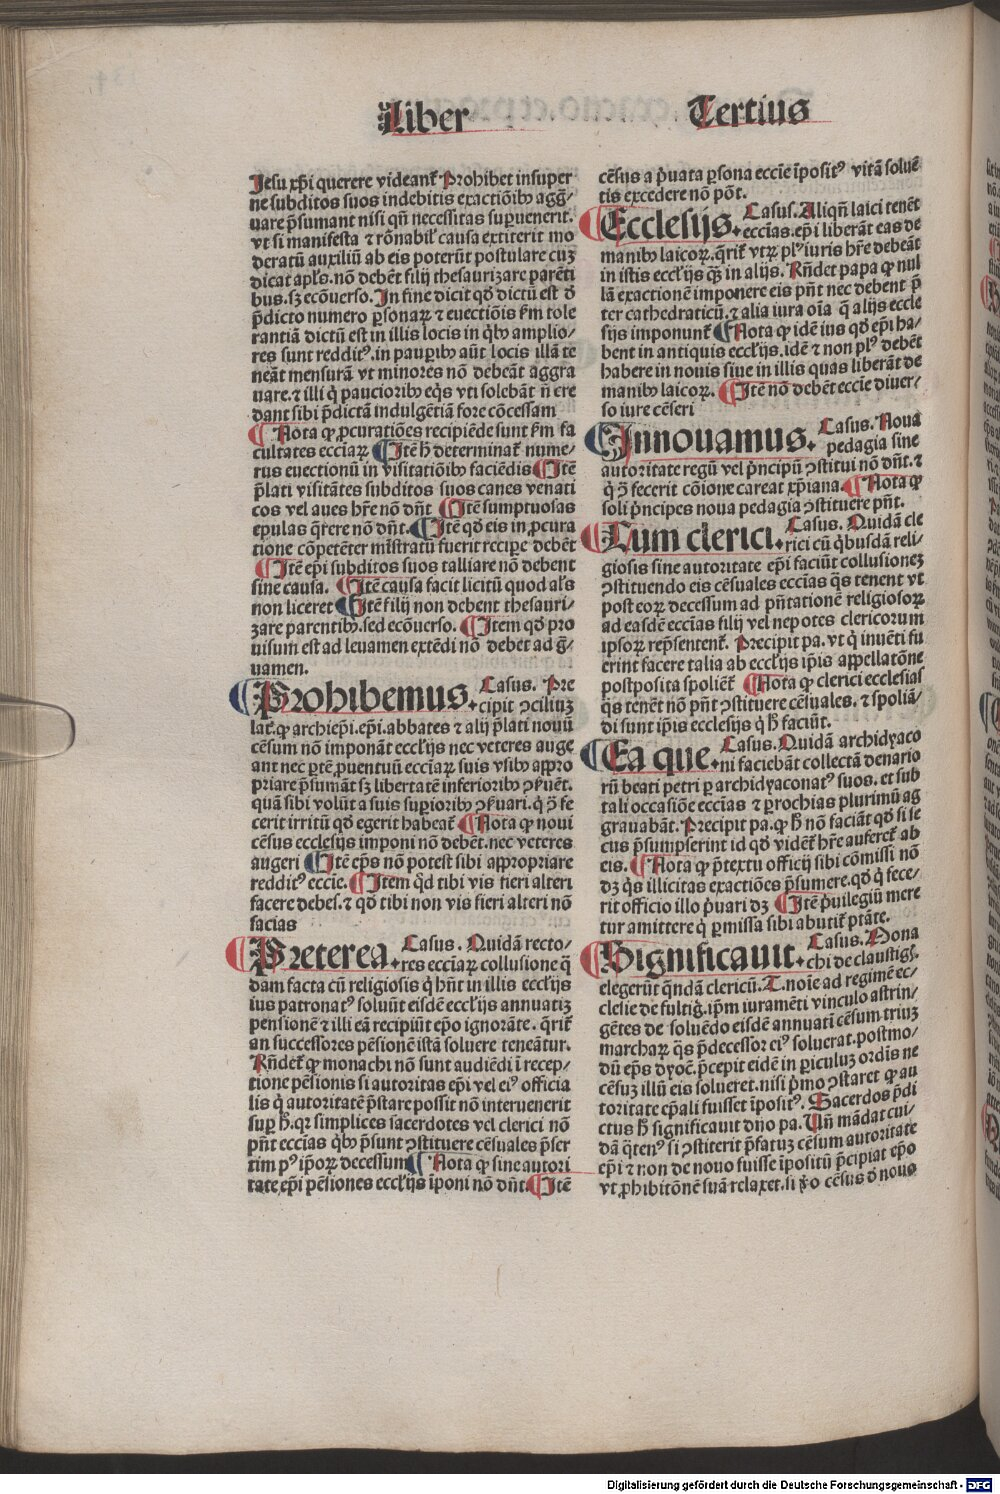 Liber Tertius
Jesu xp̄i querere videant᷑ Prohibet insuper
ne subditos suos indebitis exactiōibꝰ agg̃/
uare p̄sumant nisi qñ necessitas suꝑuenerit.
vt si manifesta ⁊ rōnabil᷑ causa extiterit mo
deratū auxiliū ab eis poterūt postulare cuꝫ
dicat apl̄s. nō debēt filij thesaurizare parēti
bus. sꝫ ecōuerso. In fine dicit qđ dictū est đ
p̄dicto numero ꝑsonaꝝ ⁊ euectiōis ẜm tole
rantiā dictū est in illis locis in q̇bꝰ amplio/
res sunt redditꝰ. in pauꝑibꝰ aūt locis illā te
neāt mensurā vt minores nō debeāt aggra
uare. ⁊ illi q̇ paucioribꝰ eq̇s vti solebāt ñ cre
dant sibi p̄dictā indulgētiā fore cōcessam
¶ Nota ꝙ ꝓcuratiōes recipiēde sunt ẜm fa
cultates ecciaꝝ ¶ Itē ħ determinat᷑ nume/
rus euectionū in visitatiōibꝰ faciēdis ¶ Itē
p̄lati visitātes subditos suos canes venati
cos vel aues hr̄e nō dn̄t ¶ Itē sumptuosas
epulas q̄rere nō dn̄t. ¶ Itē qđ eis in ꝓcura
tione cōpetēter mīstratū fuerit recipe debēt
¶ Itē ep̄i subditos suos talliare nō debent
sine causa. ¶ Itē causa facit licitū quod al᷑s
non liceret ¶ Itē filij non debent thesauri/
zare parentibꝰ. sed ecōuerso. ¶ Item qđ pro
uisum est ad leuamen extēdi nō debet ad g̃/
uamen.
¶ Prohibemus. Casus. Pre
cipit ꝯciliuꝫ
lat᷑. ꝙ archiep̄i. ep̄i. abbates ⁊ alij p̄lati nouū
cēsum nō imponāt eccl̄ijs nec veteres auge
ant nec ꝑtē ꝓuentuū ecciaꝝ suis vsibꝰ appro
priare p̄sumāt sꝫ libertatē inferioribꝰ ꝯẜuēt.
quā sibi volūt a suis suꝑioribꝰ ꝯẜuari. q̇ ꝯ̄ fe
cerit irritū qđ egerit habeat᷑ ¶ Nota ꝙ noui
cēsus ecclesijs imponi nō debēt. nec veteres
augeri ¶ Itē ep̄s nō potest sibi appropriare
redditꝰ eccie. ¶ Item q̇d tibi vis fieri alteri
facere debes. ⁊ qđ tibi non vis fieri alteri nō
facias
¶ Preterea. Casus. Quidā recto/
res ecciaꝝ collusione q̄
dam facta cū religiosis q̇ hn̄t in illis eccl̄ijs
ius patronatꝰ soluūt eisdē eccl̄ijs annuatiꝫ
pensionē ⁊ illi eā recipiūt ep̄o ignorāte. q̄rit᷑
an successores pēsionē istā soluere teneātur.
Rn̄det᷑ ꝙ monachi nō sunt audiēdi ī recep/
tione pēsionis si autoritas ep̄i vel eiꝰ officia
lis q̇ autoritatē p̄stare possit nō interuenerit
suꝑ ħ. qr simplices sacerdotes vel clerici nō
pn̄t eccias q̇bꝰ p̄sunt ꝯstituere cēsuales p̄ser
tim pꝰ ip̄oꝝ decessum ¶ Nota ꝙ sine autori
tate ep̄i pēsiones eccl̄ijs īponi nō dn̄t. ¶ Itē
cēsus a p̄uata ꝑsona eccie īpositꝰ vitā soluē
tis excedere nō pōt.
¶ Ecclesijs. Casus. Aliqñ laici tenēt
eccias. ep̄i liberāt eas de
manibꝰ laicoꝝ. q̄rit᷑ vtꝝ plꝰ iuris hr̄e debeāt
in istis eccl̄ijs q̄ꝫ in alijs. Rn̄det papa ꝙ nul
lā exactionē imponere eis pn̄t nec debent p̄
ter cathedraticū. ⁊ alia iura oīa q̄ alijs eccle
sijs imponunt᷑ ¶ Nota ꝙ idē ius qđ ep̄i ha/
bent in antiquis eccl̄ijs. idē ⁊ non plꝰ debēt
habere in nouis siue in illis quas liberāt de
manibꝰ laicoꝝ. ¶ Itē nō debēt eccie diuer/
so iure cēseri
¶ Innouamus. Casus. Noua
pedagia sine
autoritate regū vel p̄ncipū ꝯstitui nō dn̄t. ⁊
q̇ ꝯ̄ fecerit cōione careat xp̄iana. ¶ Nota ꝙ
soli p̄ncipes noua pedagia ꝯstituere pn̄t.
¶ Cum clerici. Casus. Quidā cle
rici cū q̇busdā reli/
giosis sine autoritate ep̄i faciūt collusioneꝫ
ꝯstituendo eis cēsuales eccias q̄s tenent vt
post eoꝝ decessum ad pn̄tationē religiosoꝝ
ad easdē eccias filij vel nepotes clericorum
ipsoꝝ rep̄sentent᷑. Precipit pa. vt q̇ inuēti fu
erint facere talia ab eccl̄ijs ip̄is appellatōne
postposita spoliēt᷑ ¶ Nota ꝙ clerici ecclesias
q̄s tenēt nō pn̄t ꝯstituere cēsuales. ⁊ spoliā/
di sunt ip̄is ecclesijs q̇ ħ faciūt.
¶ Ea que. Casus. Quidā archidyaco
ni faciebāt collectā denario
rū beati petri ꝑ archidyaconatꝰ suos. et sub
tali occasiōe eccias ⁊ ꝑrochias plurimū ag
grauabāt. Precipit pa. ꝙ ħ nō faciāt qđ si se
cus p̄sumpserint id qđ vident᷑ hr̄e auferet᷑ ab
eis. ¶ Nota ꝙ p̄textu officij sibi cōmissi nō
dꝫ q̇s illicitas exactiōes p̄sumere. qđ q̇ fece/
rit officio illo p̄uari dꝫ ¶ Itē p̄uilegiū mere
tur amittere q̇ ꝑmissa sibi abutit᷑ ptāte.
¶ Significauit. Casus. Mona
chi de claustig̃.
elegerūt q̄ndā clericū. T. noīe ad regimē ec/
clesie de fultig̃. ip̄m iuramēti vinculo astrin/
gētes de soluēdo eisdē annuatī cēsum triuꝫ
marchaꝝ q̄s p̄decessor eiꝰ soluerat. postmo/
dū ep̄s dyoē. p̄cepit eidē in ꝑiculuꝫ ordīs ne
cēsuꝫ illū eis solueret. nisi p̄mo ꝯstaret ꝙ au
toritate ep̄ali fuisset īpositꝰ. Sacerdos p̄di
ctus ħ significauit dn̄o pa. Vn̄ mādat cui/
dā q̄tenꝰ si ꝯstiterit p̄fatuꝫ cēsum autoritate
ep̄i ⁊ non de nouo fuisse īpositū p̄cipiat ep̄o
vt ꝓhibitōnē suā relaxet. si v̊o cēsus đ nouo
Digitalisierung gefördert durch die Deutsche Forschungsgemeinschaft - DFG